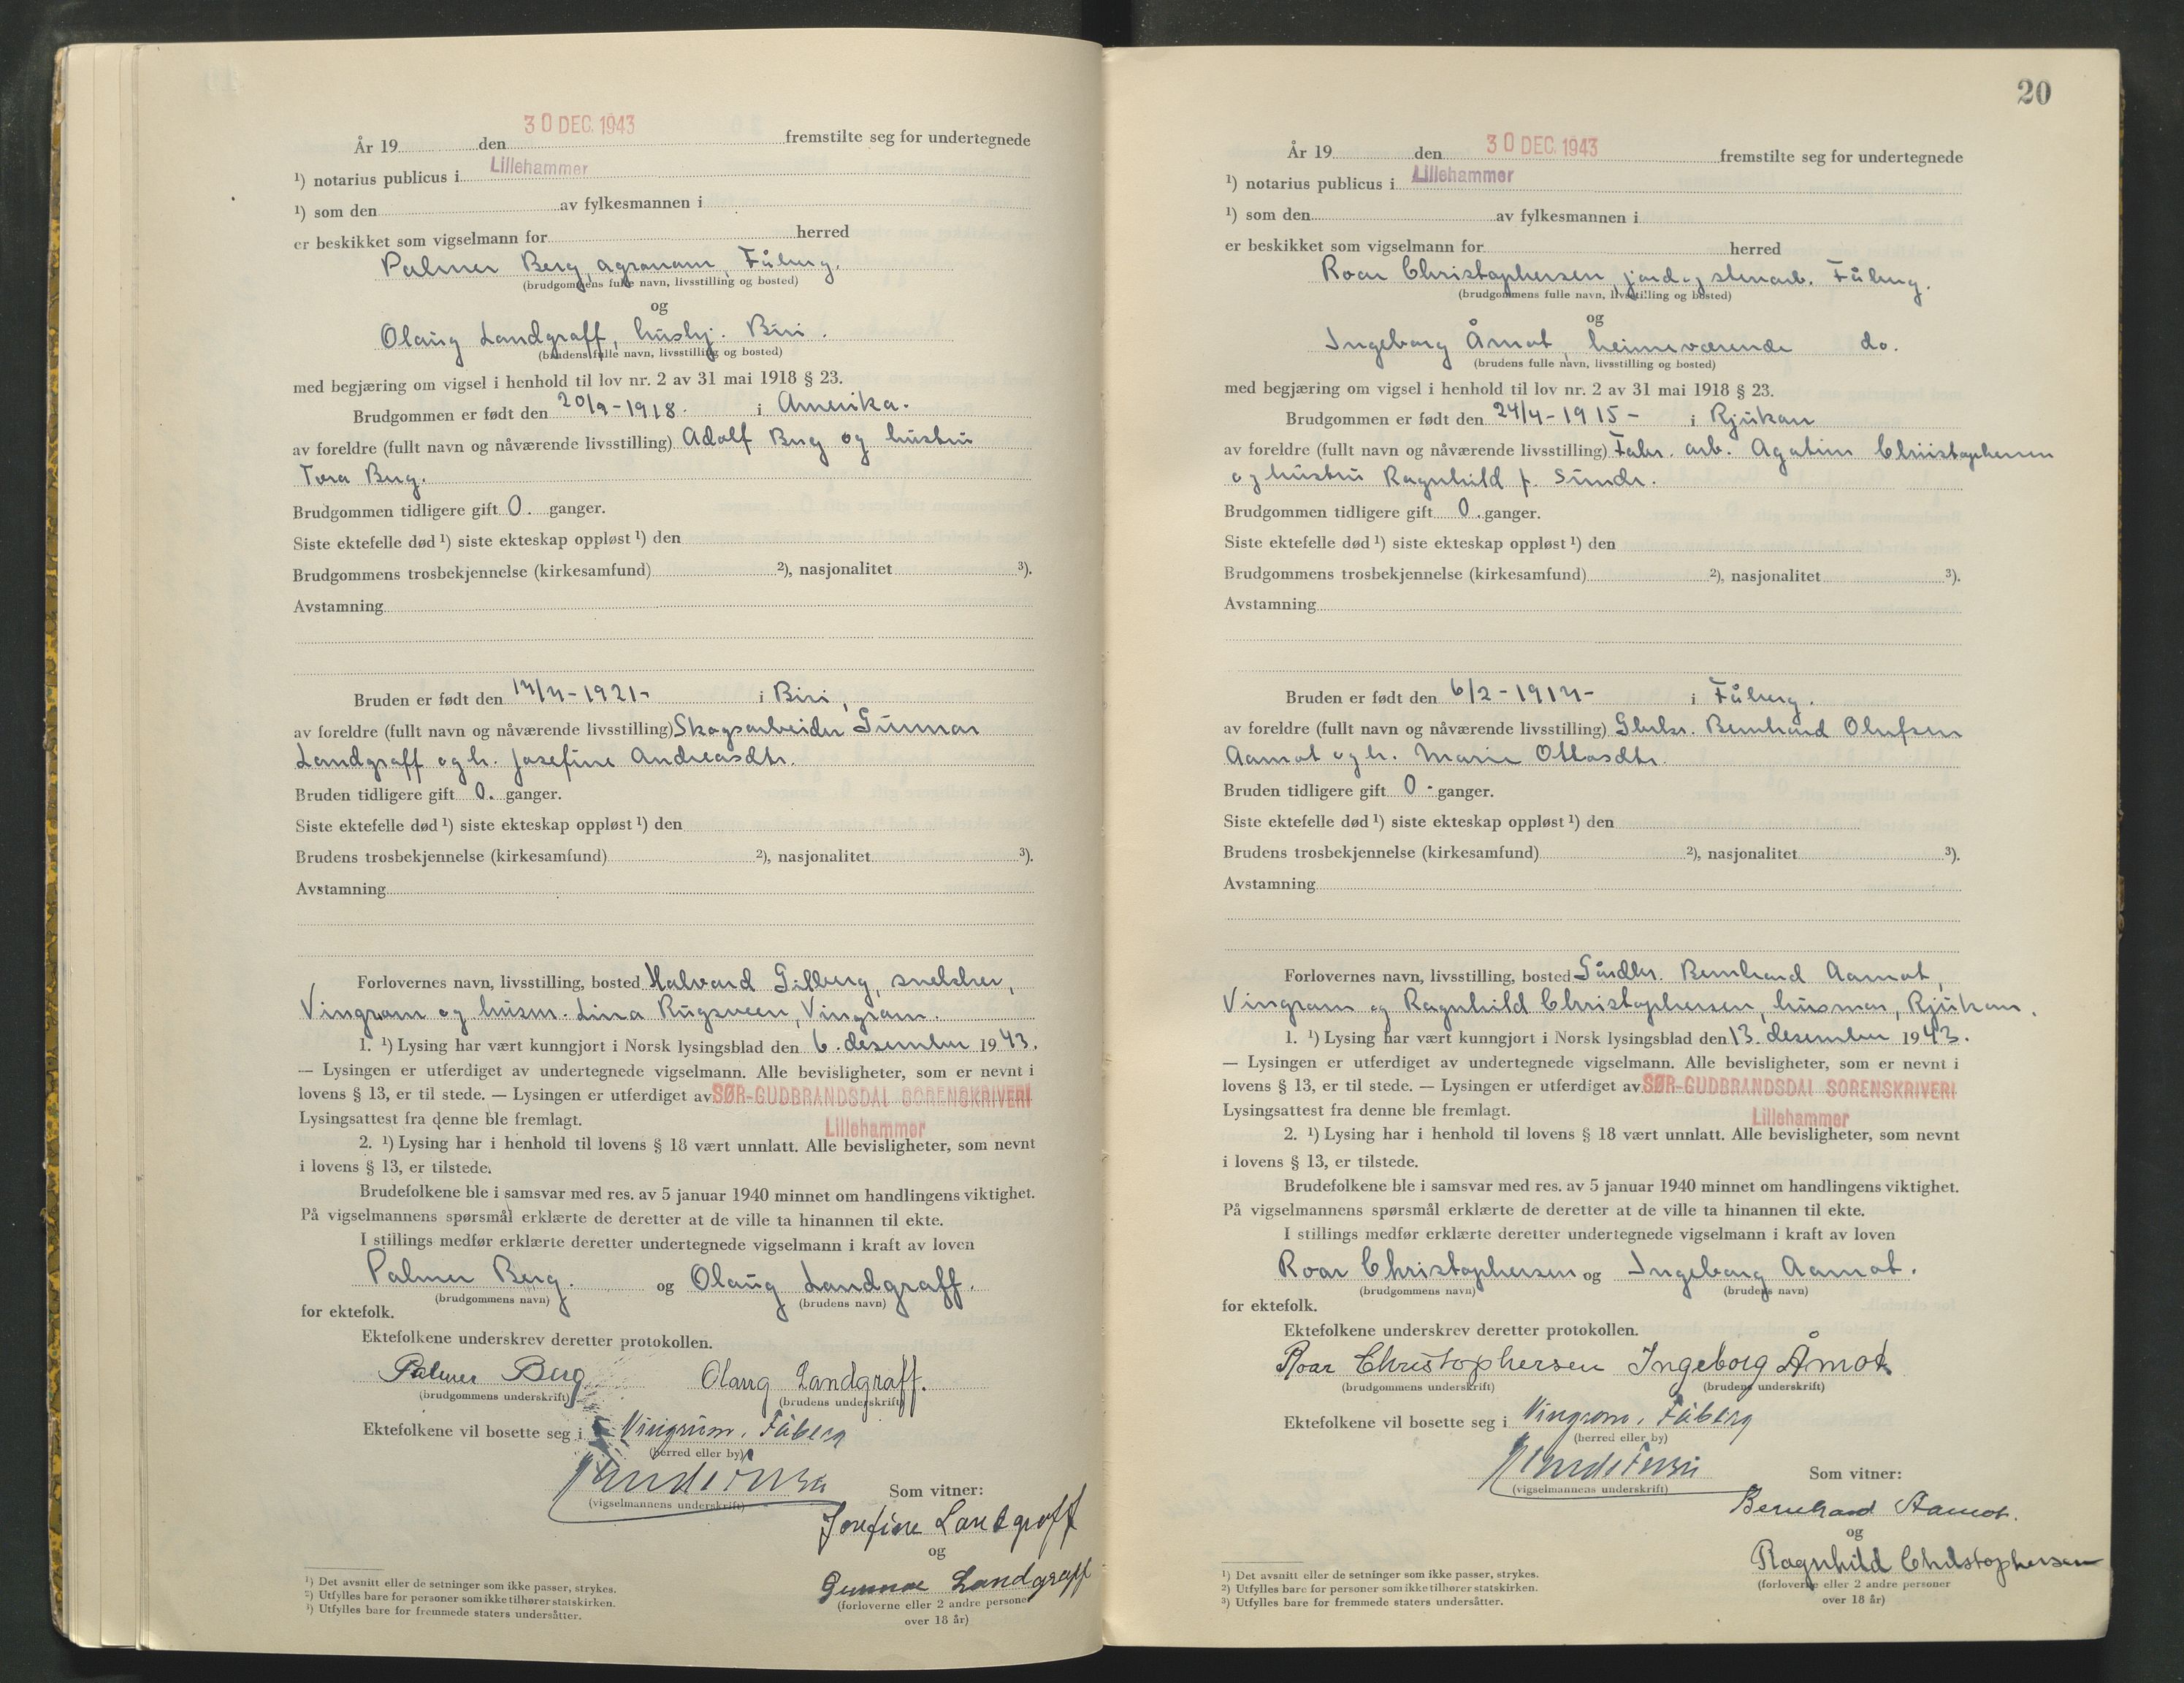 30 DEC. 1943
År 19 den fremstilte seg for undertegnede
¹) notarius publicus i Lillehammer
¹) som den av fylkesmannen i
er beskikket som vigselmann for herred
Palmer Berg, agronom, Fåberg.
(brudgommens fulle navn, livsstilling og bosted)
og
Olaug Landgraff, hushj. Biri.
(brudens fulle navn, livsstilling og bosted)
med begjæring om vigsel i henhold til lov nr. 2 av 31 mai 1918 § 23.
Brudgommen er født den 20/9-1918. i Amerika.
av foreldre (fullt navn og nåværende livsstilling) Adolf Berg og hustru
Tora Berg.
Brudgommen tidligere gift 0. ganger.
Siste ektefelle død ¹) siste ekteskap oppløst ¹) den
Brudgommens trosbekjennelse (kirkesamfund) ²), nasjonalitet ³).
Avstamning
Bruden er født den 14/4-1921- i Biri,
av foreldre (fullt navn og nåværende livsstilling) Skogsarbeider Gunnar
Landgraff og h. Josefine Andreasdtr.
Bruden tidligere gift 0. ganger.
Siste ektefelle død ¹) siste ekteskap oppløst ¹) den
Brudens trosbekjennelse (kirkesamfund) ²), nasjonalitet ³).
Avstamning
Forlovernes navn, livsstilling, bosted Halvard snekker,
Vingrom og husm. Lina Rugsveen, Vingrom.
1. ¹) Lysing har vært kunngjort i Norsk lysingsblad den 6. desember 1943.
— Lysingen er utferdiget av undertegnede vigselmann. Alle bevisligheter, som er nevnt i
lovens § 13, er til stede. — Lysingen er utferdiget av SØR-GUDBRANDSDAL SORENSKRIVERI
Lysingsattest fra denne ble fremlagt. Lillehammer
2. ¹) Lysing har i henhold til lovens § 18 vært unnlatt. Alle bevisligheter, som nevnt
i lovens § 13, er tilstede.
Brudefolkene ble i samsvar med res. av 5 januar 1940 minnet om handlingens viktighet.
På vigselmannens spørsmål erklærte de deretter at de ville ta hinannen til ekte.
I stillings medfør erklærte deretter undertegnede vigselmann i kraft av loven
Palmer Berg. og Olaug Landgraff.
(brudgommens navn) (brudens navn)
for ektefolk.
Ektefolkene underskrev deretter protokollen.
Palmer Berg Olaug Landgraff.
(brudgommens underskrift) (brudens underskrift)
Ektefolkene vil bosette seg i Vingrom, Fåberg
(herred eller by)
(vigselmannens underskrift)
Som vitner:
Josefine Landgraff
og
Gunnar Landgraff
(forloverne eller 2 andre personer
over 18 år)
¹) Det avsnitt eller de setninger som ikke passer, strykes.
²) Utfylles bare for personer som ikke tilhører statskirken.
³) Utfylles bare for fremmede staters undersåtter.
20
30 DEC. 1943
År 19 den fremstilte seg for undertegnede
¹) notarius publicus i Lillehammer
¹) som den av fylkesmannen i
er beskikket som vigselmann for herred
Roar Christophersen, jord og stenarb. Fåberg.
(brudgommens fulle navn, livsstilling og bosted)
og
Ingeborg Åmot, heimeværende do.
(brudens fulle navn, livsstilling og bosted)
med begjæring om vigsel i henhold til lov nr. 2 av 31 mai 1918 § 23.
Brudgommen er født den 24/4-1915- i Rjukan
av foreldre (fullt navn og nåværende livsstilling) Fabr. arb. Christophersen
og hustru Ragnhild f. Sunde.
Brudgommen tidligere gift 0. ganger.
Siste ektefelle død ¹) siste ekteskap oppløst ¹) den
Brudgommens trosbekjennelse (kirkesamfund) ²), nasjonalitet ³).
Avstamning
Bruden er født den 6/2-1914- i Fåberg.
av foreldre (fullt navn og nåværende livsstilling) Gbrkr. Bernhard Olufsen
Aamot og h. Marie Ottosdtr.
Bruden tidligere gift 0. ganger.
Siste ektefelle død ¹) siste ekteskap oppløst ¹) den
Brudens trosbekjennelse (kirkesamfund) ²), nasjonalitet ³).
Avstamning
Forlovernes navn, livsstilling, bosted Gårdbr. Bernhard Aamot,
Vingrom og Ragnhild Christophersen, husmor, Rjukan.
1. ¹) Lysing har vært kunngjort i Norsk lysingsblad den 13. desember 1943.
— Lysingen er utferdiget av undertegnede vigselmann. Alle bevisligheter, som er nevnt i
lovens § 13, er til stede. — Lysingen er utferdiget av SØR-GUDBRANDSDAL SORENSKRIVERI
Lysingsattest fra denne ble fremlagt. Lillehammer
2. ¹) Lysing har i henhold til lovens § 18 vært unnlatt. Alle bevisligheter, som nevnt
i lovens § 13, er tilstede.
Brudefolkene ble i samsvar med res. av 5 januar 1940 minnet om handlingens viktighet.
På vigselmannens spørsmål erklærte de deretter at de ville ta hinannen til ekte.
I stillings medfør erklærte deretter undertegnede vigselmann i kraft av loven
Roar Christophersen og Ingeborg Aamot.
(brudgommens navn) (brudens navn)
for ektefolk.
Ektefolkene underskrev deretter protokollen.
Roar Christophersen Ingeborg Åmot
(brudgommens underskrift) (brudens underskrift)
Ektefolkene vil bosette seg i Vingrom, Fåberg
(herred eller by)
(vigselmannens underskrift)
Som vitner:
Bernhard Aamot.
og
Ragnhild Christophersen
(forloverne eller 2 andre personer
over 18 år)
¹) Det avsnitt eller de setninger som ikke passer, strykes.
²) Utfylles bare for personer som ikke tilhører statskirken.
³) Utfylles bare for fremmede staters undersåtter.